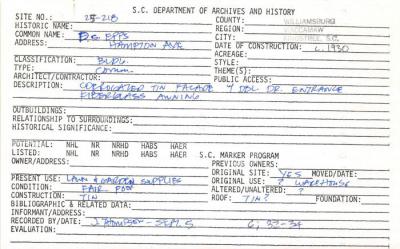 S.C. DEPARTMENT OF ARCHIVES AND HISTORY
SITE NO.: 25-218 COUNTY: WILLIAMSBURG
HISTORIC NAME: REGION: WACCAMAW
COMMON NAME: D.G. EPPS CITY: KINGSTREE, S.C.
ADDRESS: HAMPTON AVE DATE OF CONSTRUCTION: c. 1930
ACREAGE:
CLASSIFICATION: BLDG. STYLE:
TYPE: COMM. THEME(S):
ARCHITECT/CONTRACTOR: PUBLIC ACCESS:
DESCRIPTION: CORRUGATED TIN FACADE DBL. DR. ENTRANCE
FIBERGLASS AWNING
OUTBUILDINGS:
RELATIONSHIP TO SURROUNDINGS:
HISTORICAL SIGNIFICANCE:
POTENTIAL: NHL NR NRHD HABS HAER
LISTED: NHL NR NRHD HABS HAER S.C. MARKER PROGRAM
OWNER/ADDRESS: PREVIOUS OWNERS:
ORIGINAL SITE: YES MOVED/DATE:
PRESENT USE: LAWN & GARDEN SUPPLIES ORIGINAL USE: ? WAREHOUSE
CONDITION: FAIR POOR ALTERED/UNALTERED: ?
CONSTRUCTION: TIN ROOF: TIN? FOUNDATION:
BIBLIOGRAPHIC & RELATED DATA:
INFORMANT/ADDRESS:
RECORDED BY/DATE: J. THOMPSON - SEPT. 5 6; 32-34
EVALUATION: